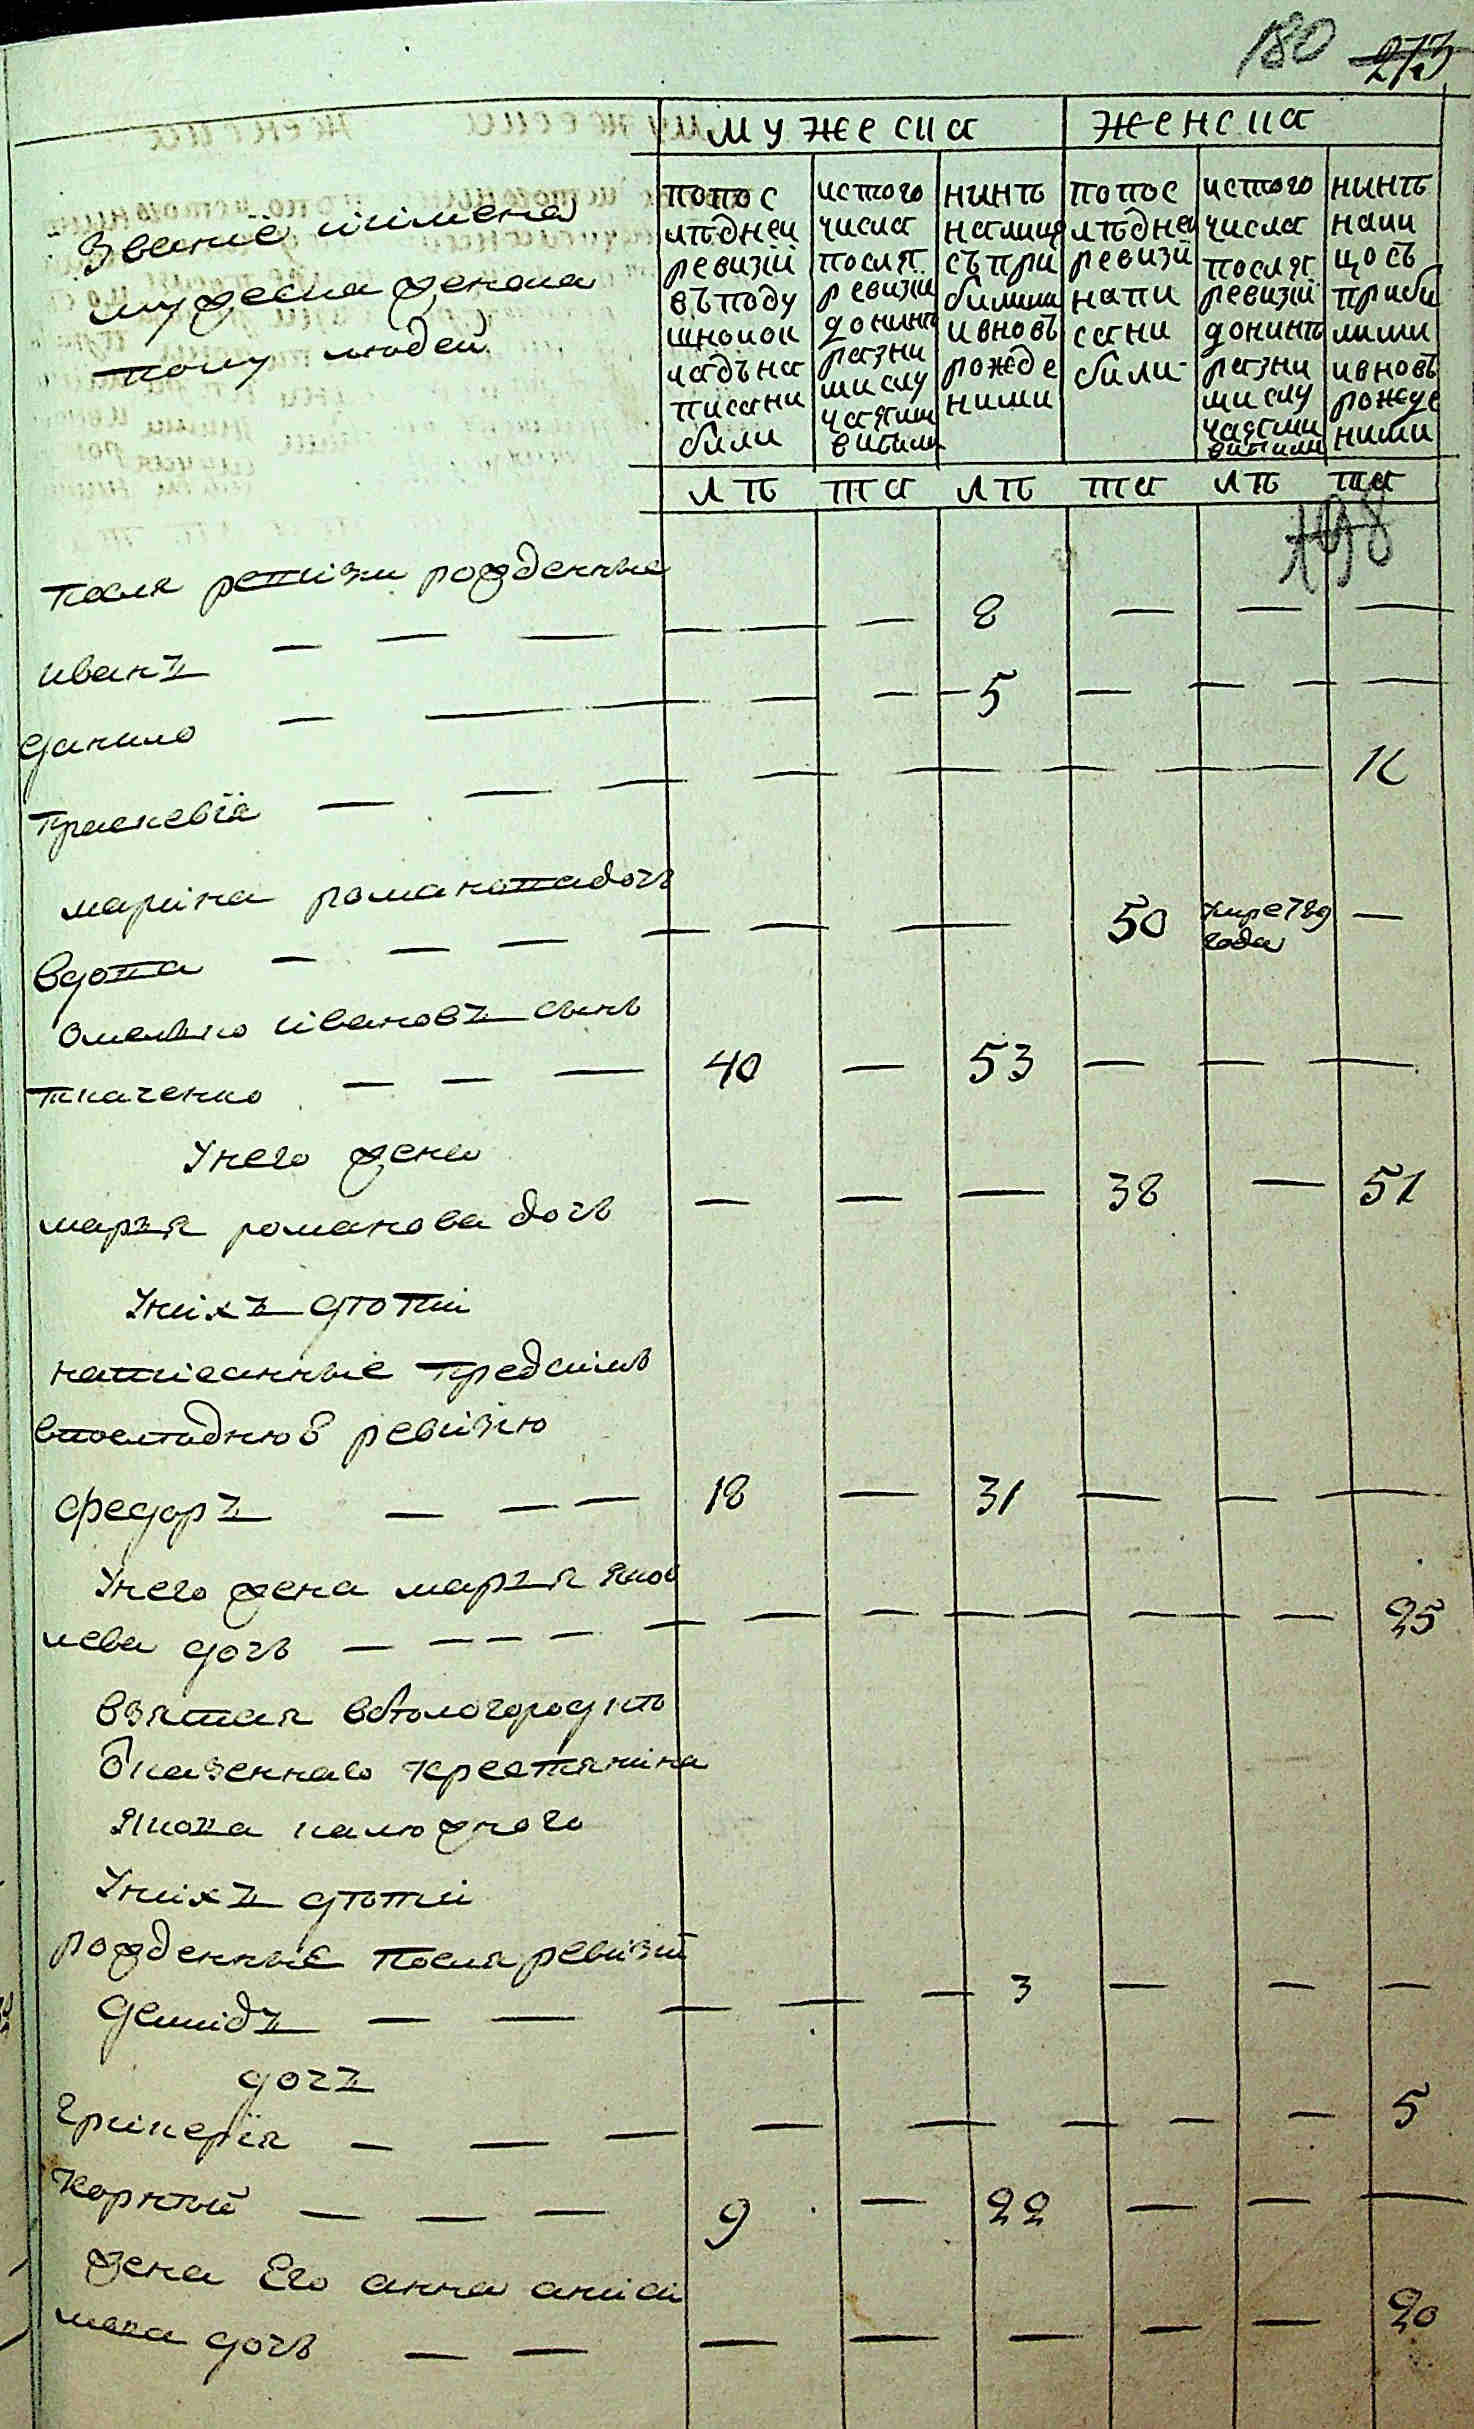 180 273
мужеска женска
Звание иимена
мужеска женска
полу людей
попос лѣдней ревизіи въподу шнокок ладъна писани били
истого числа посля ревизіи донинѣ разни ми слу чаями вибили
нинѣ налицо съ при билими ивновъ рожде ними
попос лѣдней ревизіи напи сани били
истого числа посля ревизіи донинѣ разни ми слу чаями вибили
нинѣ нали цо съ приби лими ивновъ рожде ними
лѣ та лѣ та лѣ та
198
после ревизіи рожденные
иванъ — — — — — — 8 — — —
данило — — — — — — 5 — — — —
праскевія — — — — — — — — 11
марина романовадочь
вдова — — — — — — 50 умре 789 года —
омелко ивановъ сынъ
ткаченко — — — 40 — 53 — — —
Унего жена
маръя романова дочь — — — 38 — 51
Унихъ дѣти
написанные предсимъ
впослѣднюю ревизію
федоръ — — — 18 — 31 — — —
Унего жена маръя яков
лева дочь — — — — — — — — — — — 25
взятая вбѣлогородкѣ
казеннаго крестянина
якова калюжного
Унихъ дѣти
рожденные послѣ ревизіи
демидъ — — — — — 3 — — —
дочъ
гликерїя — — — — — — — — 5
корнѣй — — — 9 — 22 — — —
жена Его анна аниси
мова дочь — — — — — — — 20